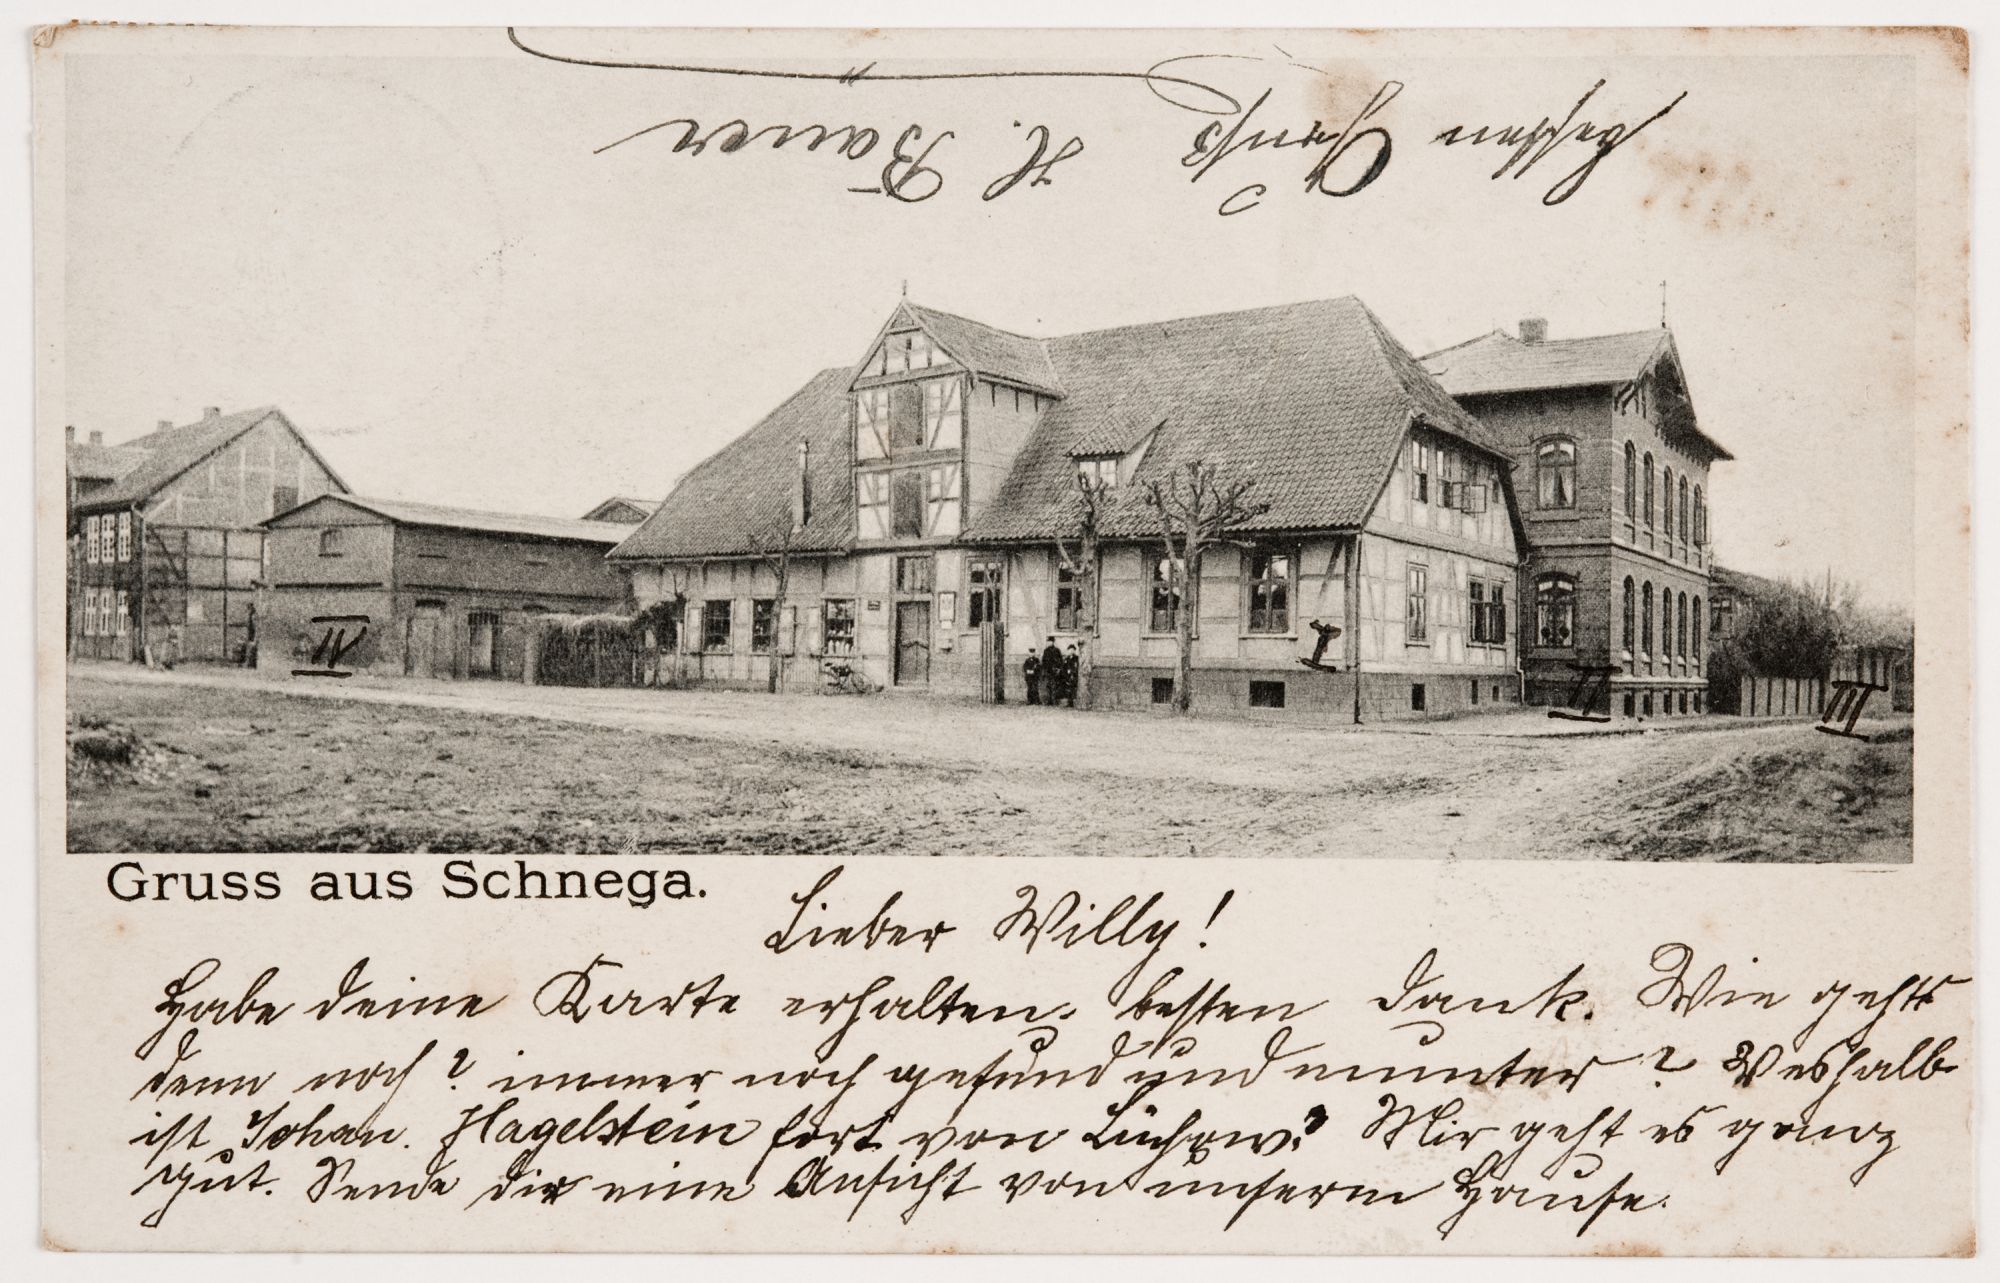 besten Gruß H. Bäuer
IV
I
II
III
Gruss aus Schnega.
Lieber Willy!
Habe deine Karte erhalten. besten Dank. Wie gehts
denn noch? immer noch gesund und munter? Weshalb
ist Johan. Hagelstein fort von Lüchow? Mir geht es ganz
gut. Sende dir eine Ansicht von unserm Hause.